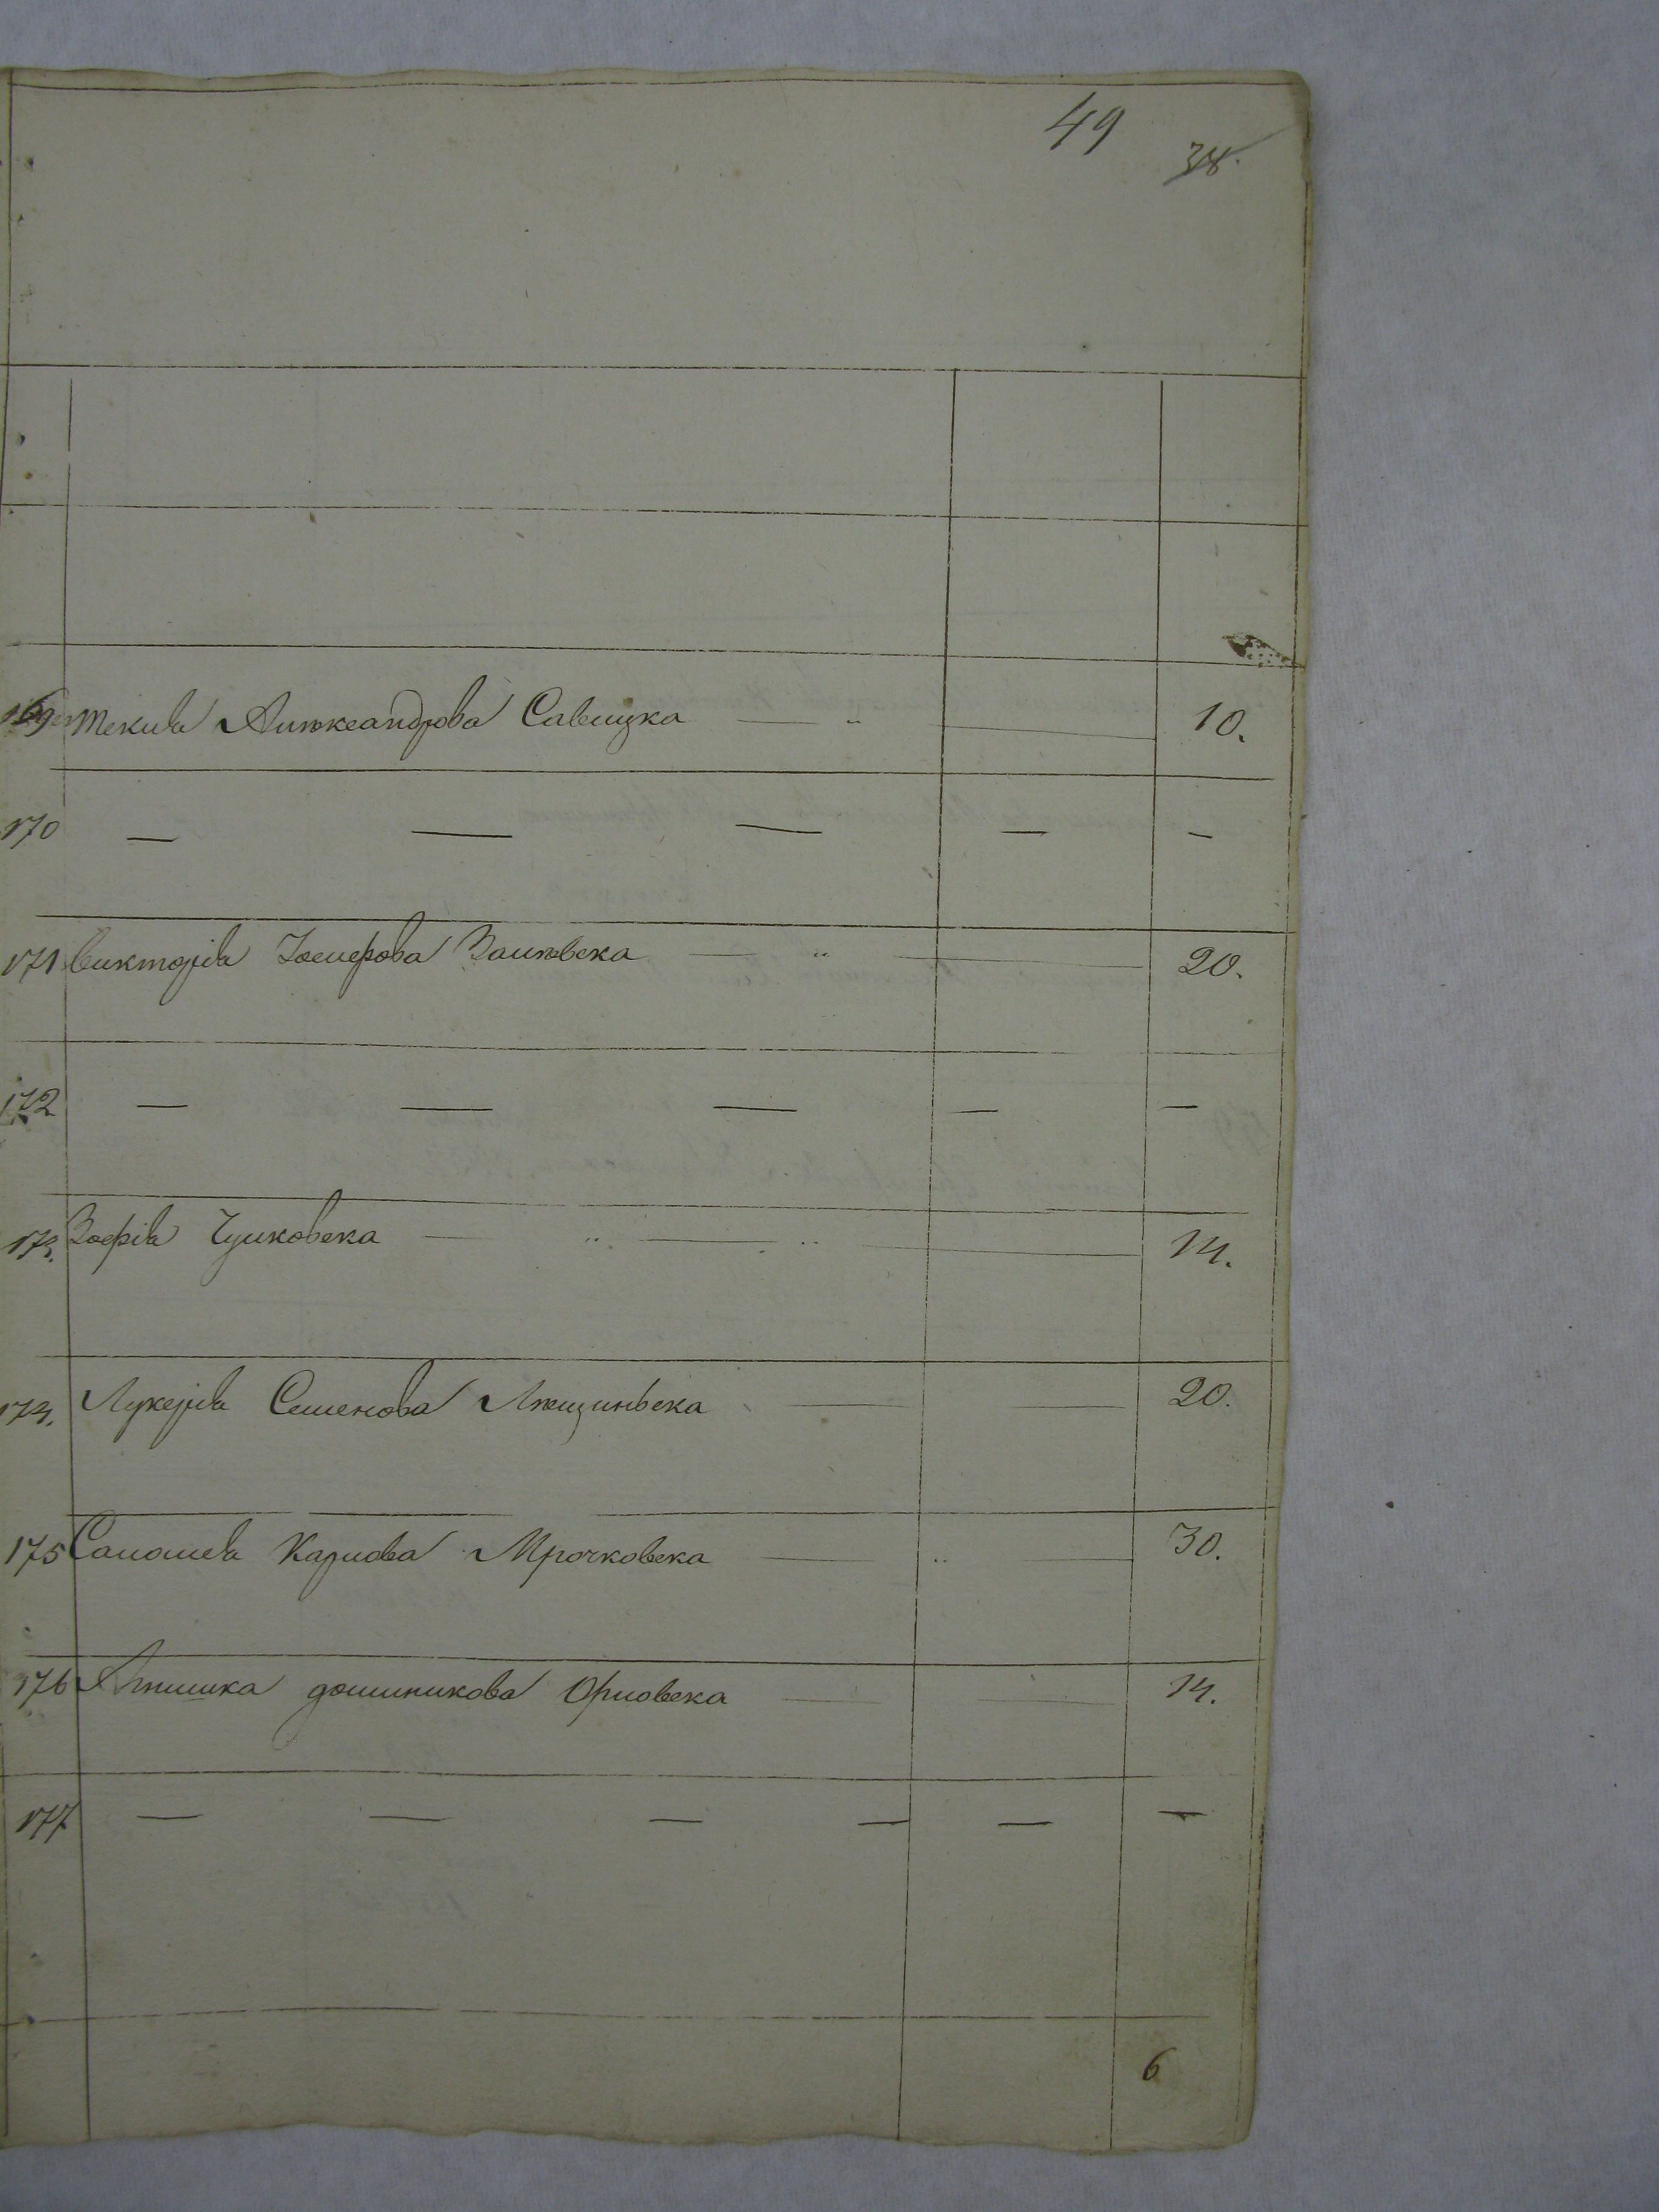 49
38.
169 Текля Александрова Савицка — „ — 10.
170 — — — — —
171 Викторiя Iосифова Залѣвска — „ — 20.
172 — — — — —
173. Зофiя Чулковска — „ — „ — 14.
174. Лукерiя Семенова Лѣщиньска — 20.
175 Саломея Карлова Мрочковска — „ — 30.
176 Агнишка доминикова Орловска — 14.
177 — — — — — —
6